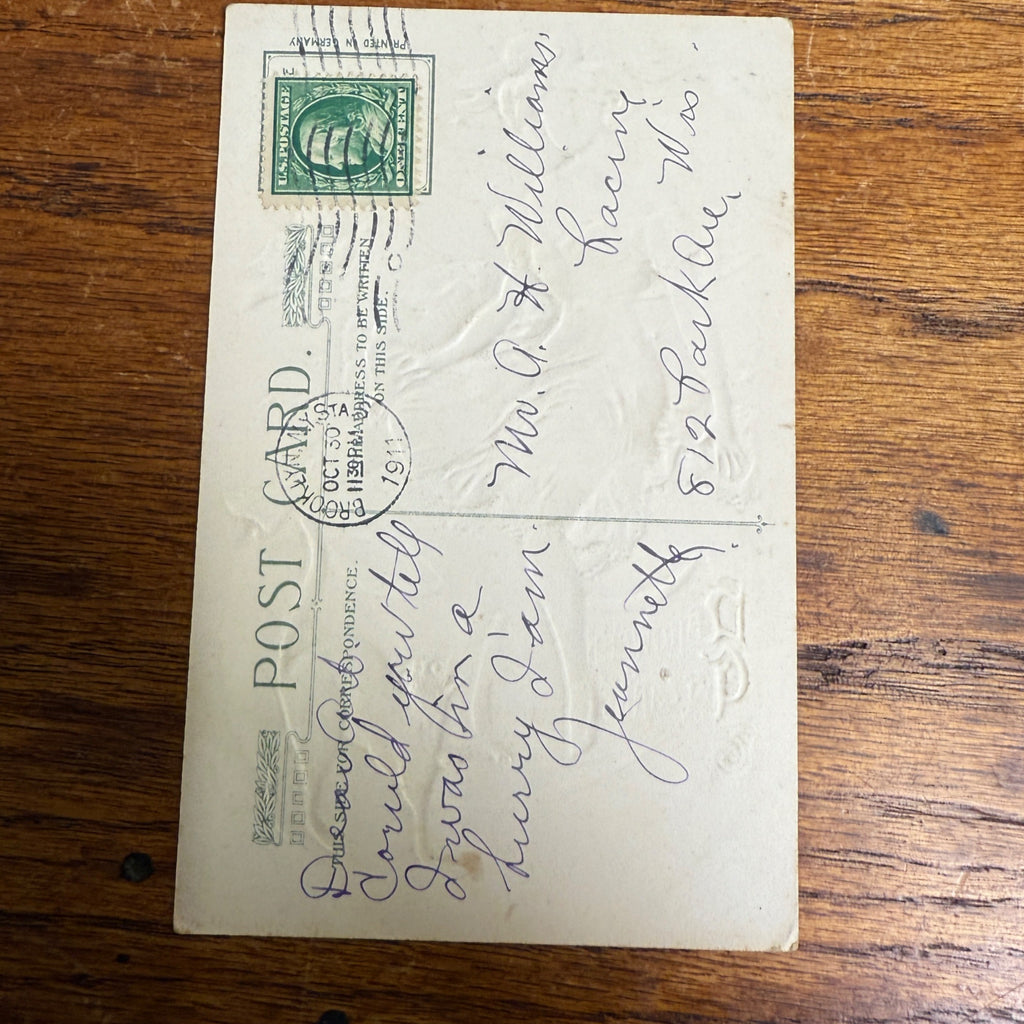 PRINTED IN GERMANY
U.S. POSTAGE
ONE CENT
POST CARD.
THIS SIDE FOR CORRESPONDENCE.
ADDRESS TO BE WRITTEN
ON THIS SIDE.
BROOKLYN STA
OCT 30
11 30 PM
1911
C
Could you tell
I was in a
hurry I am.
Jeannette.
Mr. A. H. Williams
Racine
Wis.
812 Park Ave,